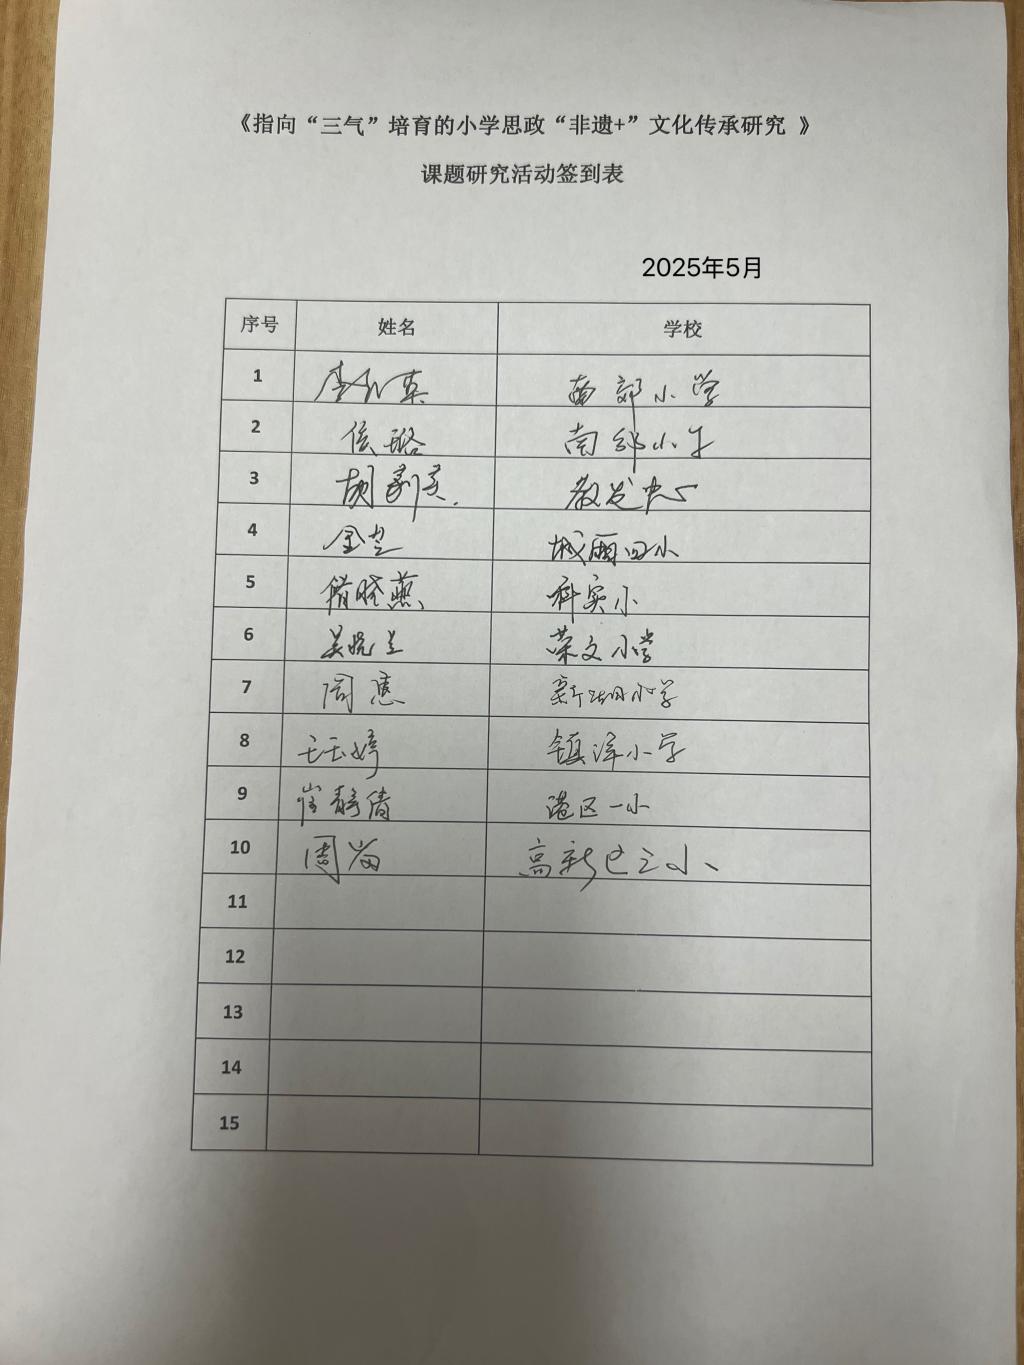 《指向“三气”培育的小学思政“非遗+”文化传承研究 》
课题研究活动签到表
2025年5月
序号 姓名 学校
1 南郊小学
2 侯璐 南郊小学
3 胡 教发中心
4 金 城厢四小
5 晓燕 科实小
6 吴晓兰 荣文小学
7 周惠 新湖小学
8 王玉婷 镇洋小学
9 崔静倩 港区一小
10 周 高新区三小
11
12
13
14
15